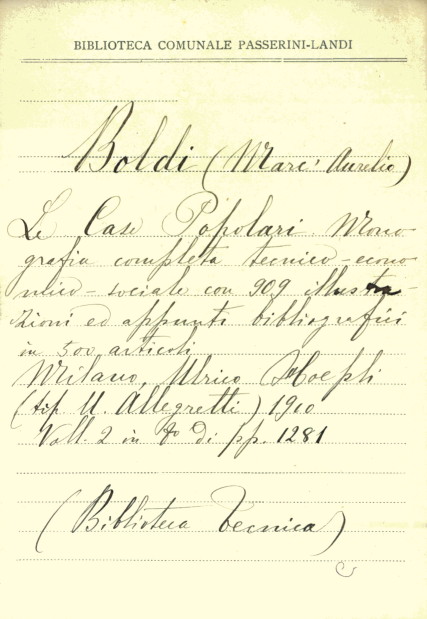 BIBLIOTECA COMUNALE PASSERINI-LANDI
Boldi (Marc' Aurelio)
Le Case Popolari. Mono
grafia completa tecnico-econo
mico-sociale con 909 illustra-
zioni ed appunti bibliografici
in 500 articoli
Milano, Ulrico Hoepli
(tip. U. Allegretti) 1910
Voll. 2 in 8° di pp. 1281
(Biblioteca Tecnica)